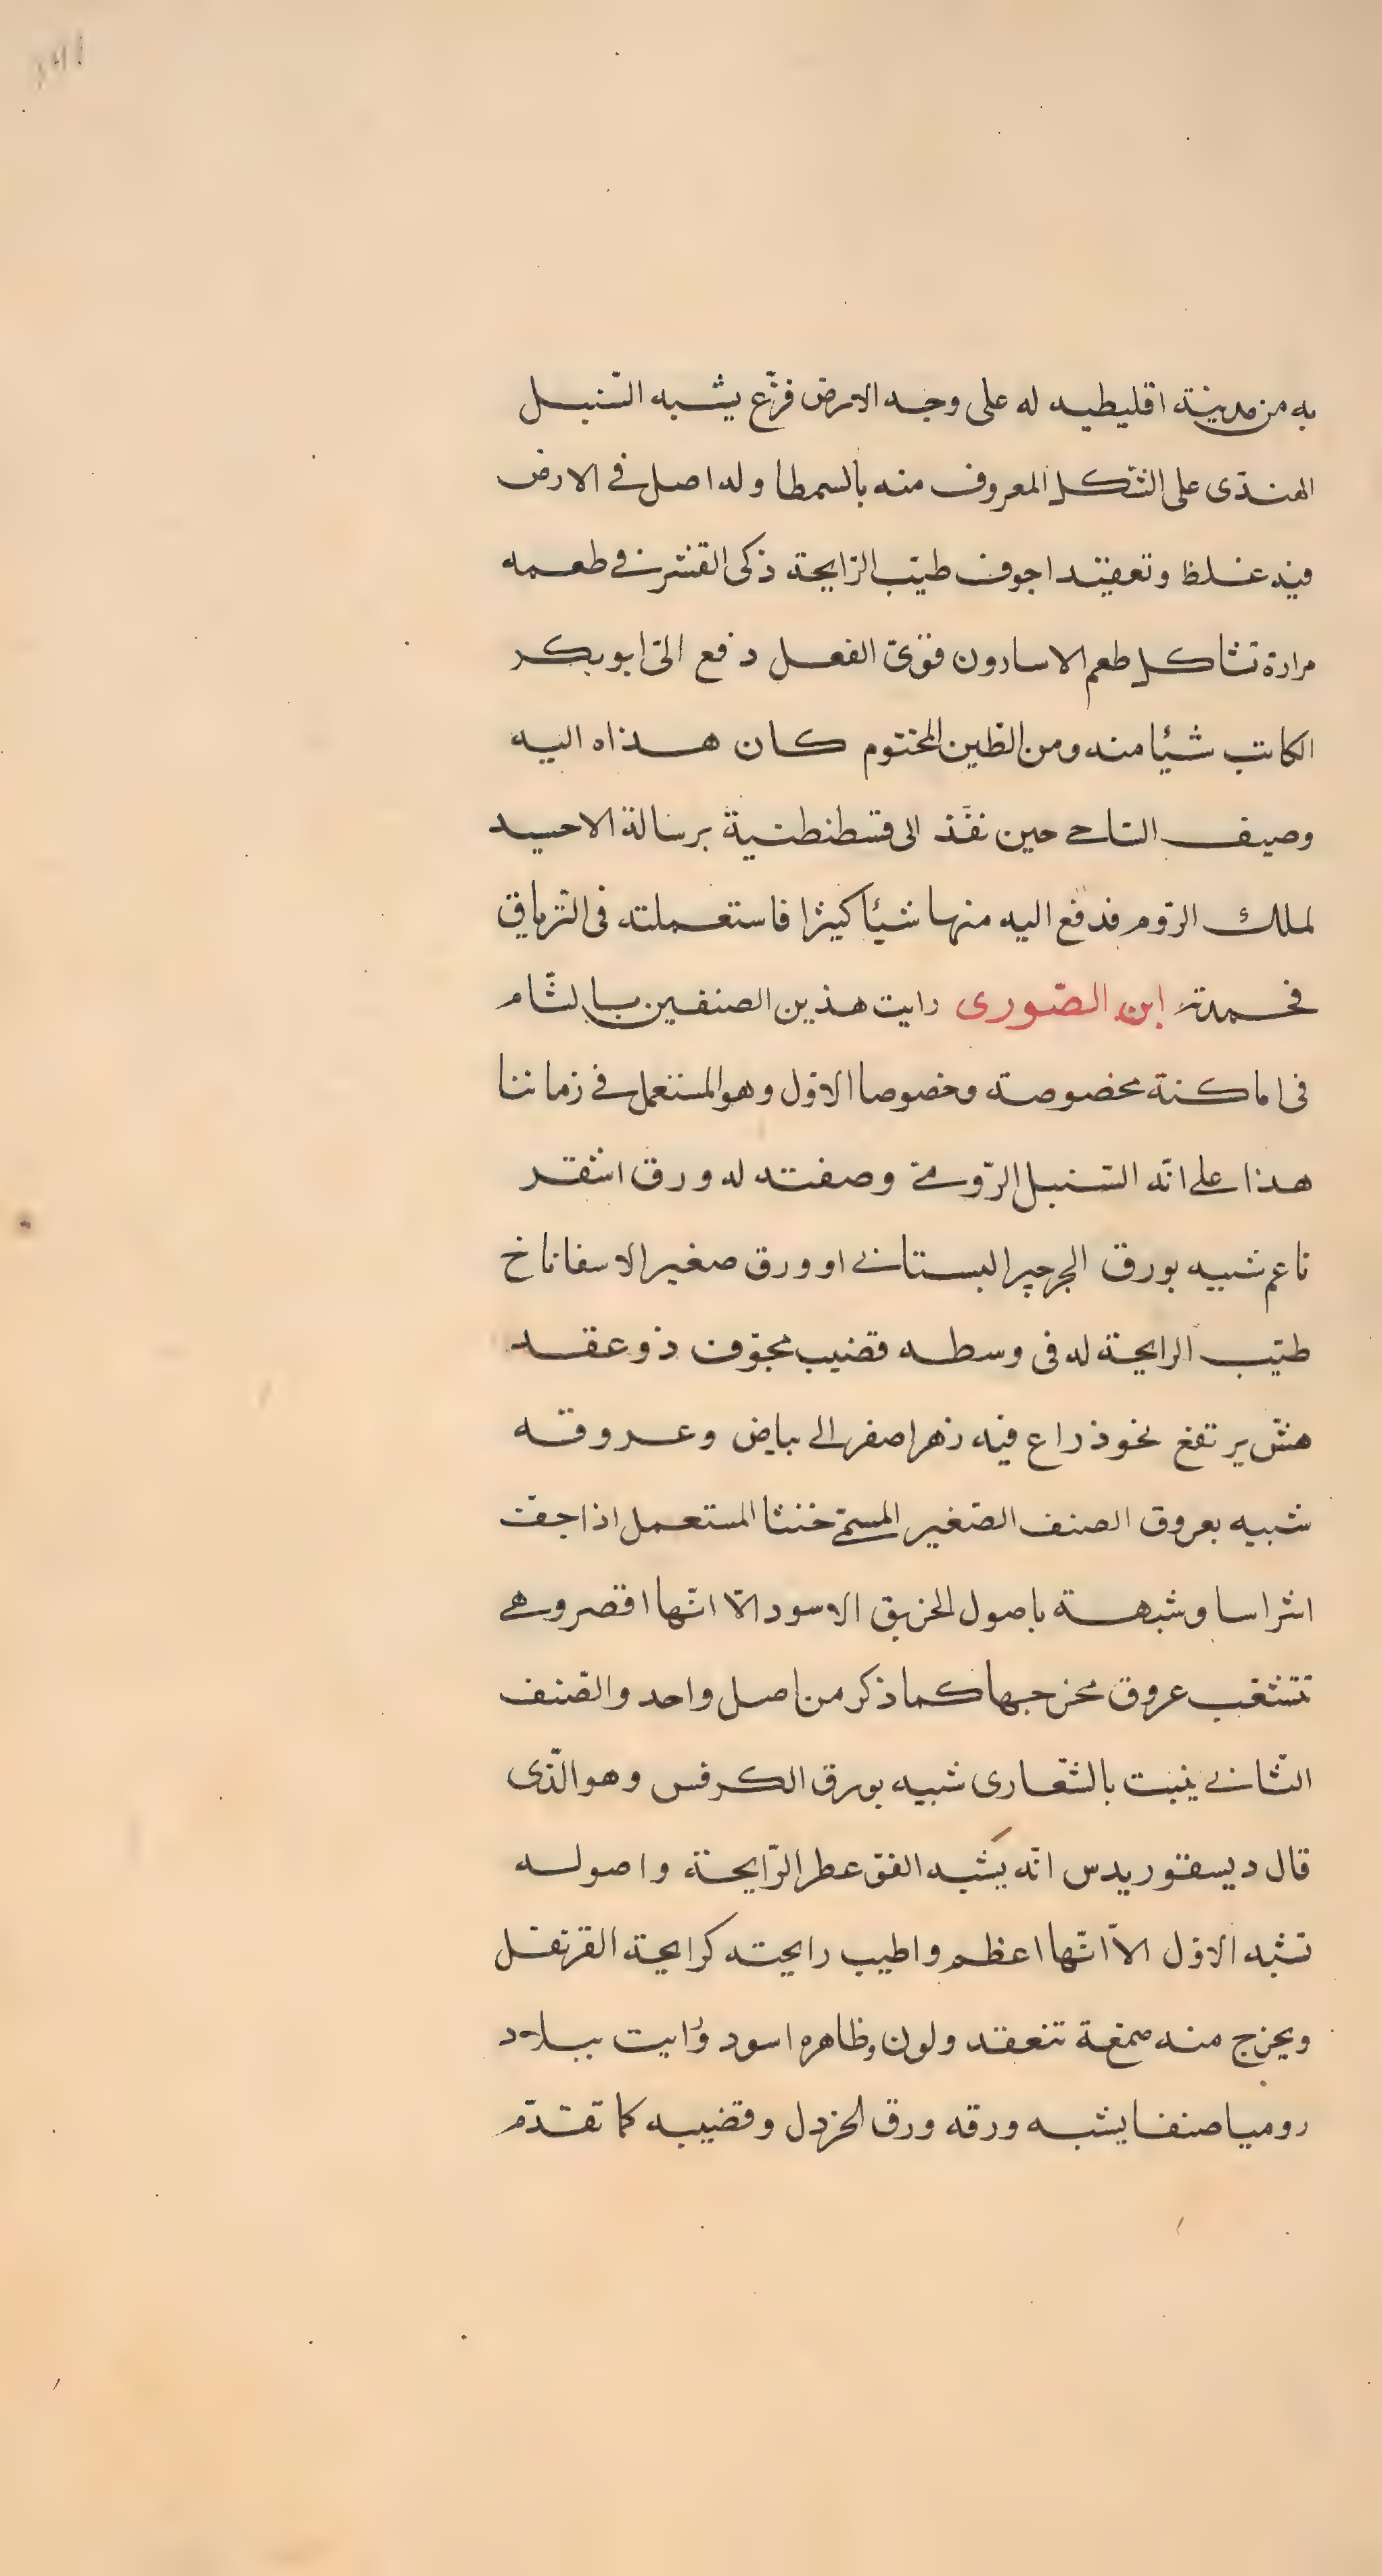 به من مدينة اقليطيه له على وجه الارض فرّع يشبه السّنبل
الهندى على الشكل المعروف منه بالسمطا وله اصل فى الارض
فيه غلظ وتعقيد اجوف طيّب الرّايحة ذكى القشر فى طعمه
مرارة تشاكل طعم الاسارون قوّىّ الفعل دفع الىّ ابو بكر
الكاتب شيًا منه ومن الطّين المختوم كان هذاه اليه
وصيف حين نفّذ الى قسطنطنية برسالة الاحسيد
لملك الرّوم فدفع اليه منها شيًا كثيرا فاستعملته فى التّرياق
فحمدته ابن الصّورى رايت هذين الصنفين بالشّام
فى اماكنة مخصوصة وخصوصا الاوّل وهو المستعمل فى زماننا
هذا على انّه السّنبل الرّومىّ وصفته له ورق اشقر
ناعم شبيه بورق الجرجير البستانى او ورق صغير الاسفاناخ
طيّب الرايحة له فى وسطه قضيب مجوّف ذو عقد
هش يرتفع نحو ذراع فيه زهر اصفر الى بياض وعروقه
شبيه بعروق الصنف الصّغير المسمّى خنثا المستعمل اذا جفّت
اشراسا وشبهة باصول الخربق الاسود الّا انّها اقصر وهى
تتشعّب عروق مخرجها كما ذكر من اصل واحد والصّنف
الثّانى ينبت بالشّعارى شبيه بورق الكرفس وهو الّذى
قال ديسقوريدس انّه يشبه الفوّ عطر الرّايحة واصوله
تشبه الاوّل الّا انّها اعظم واطيب رايحته كرايحة القرنفل
ويخرج منه صمغة تنعقد ولون وظاهره اسود وُرايت ببلاد
روميا صنفا يشبه ورقه ورق الخردل وقضيبه كما تقدّم